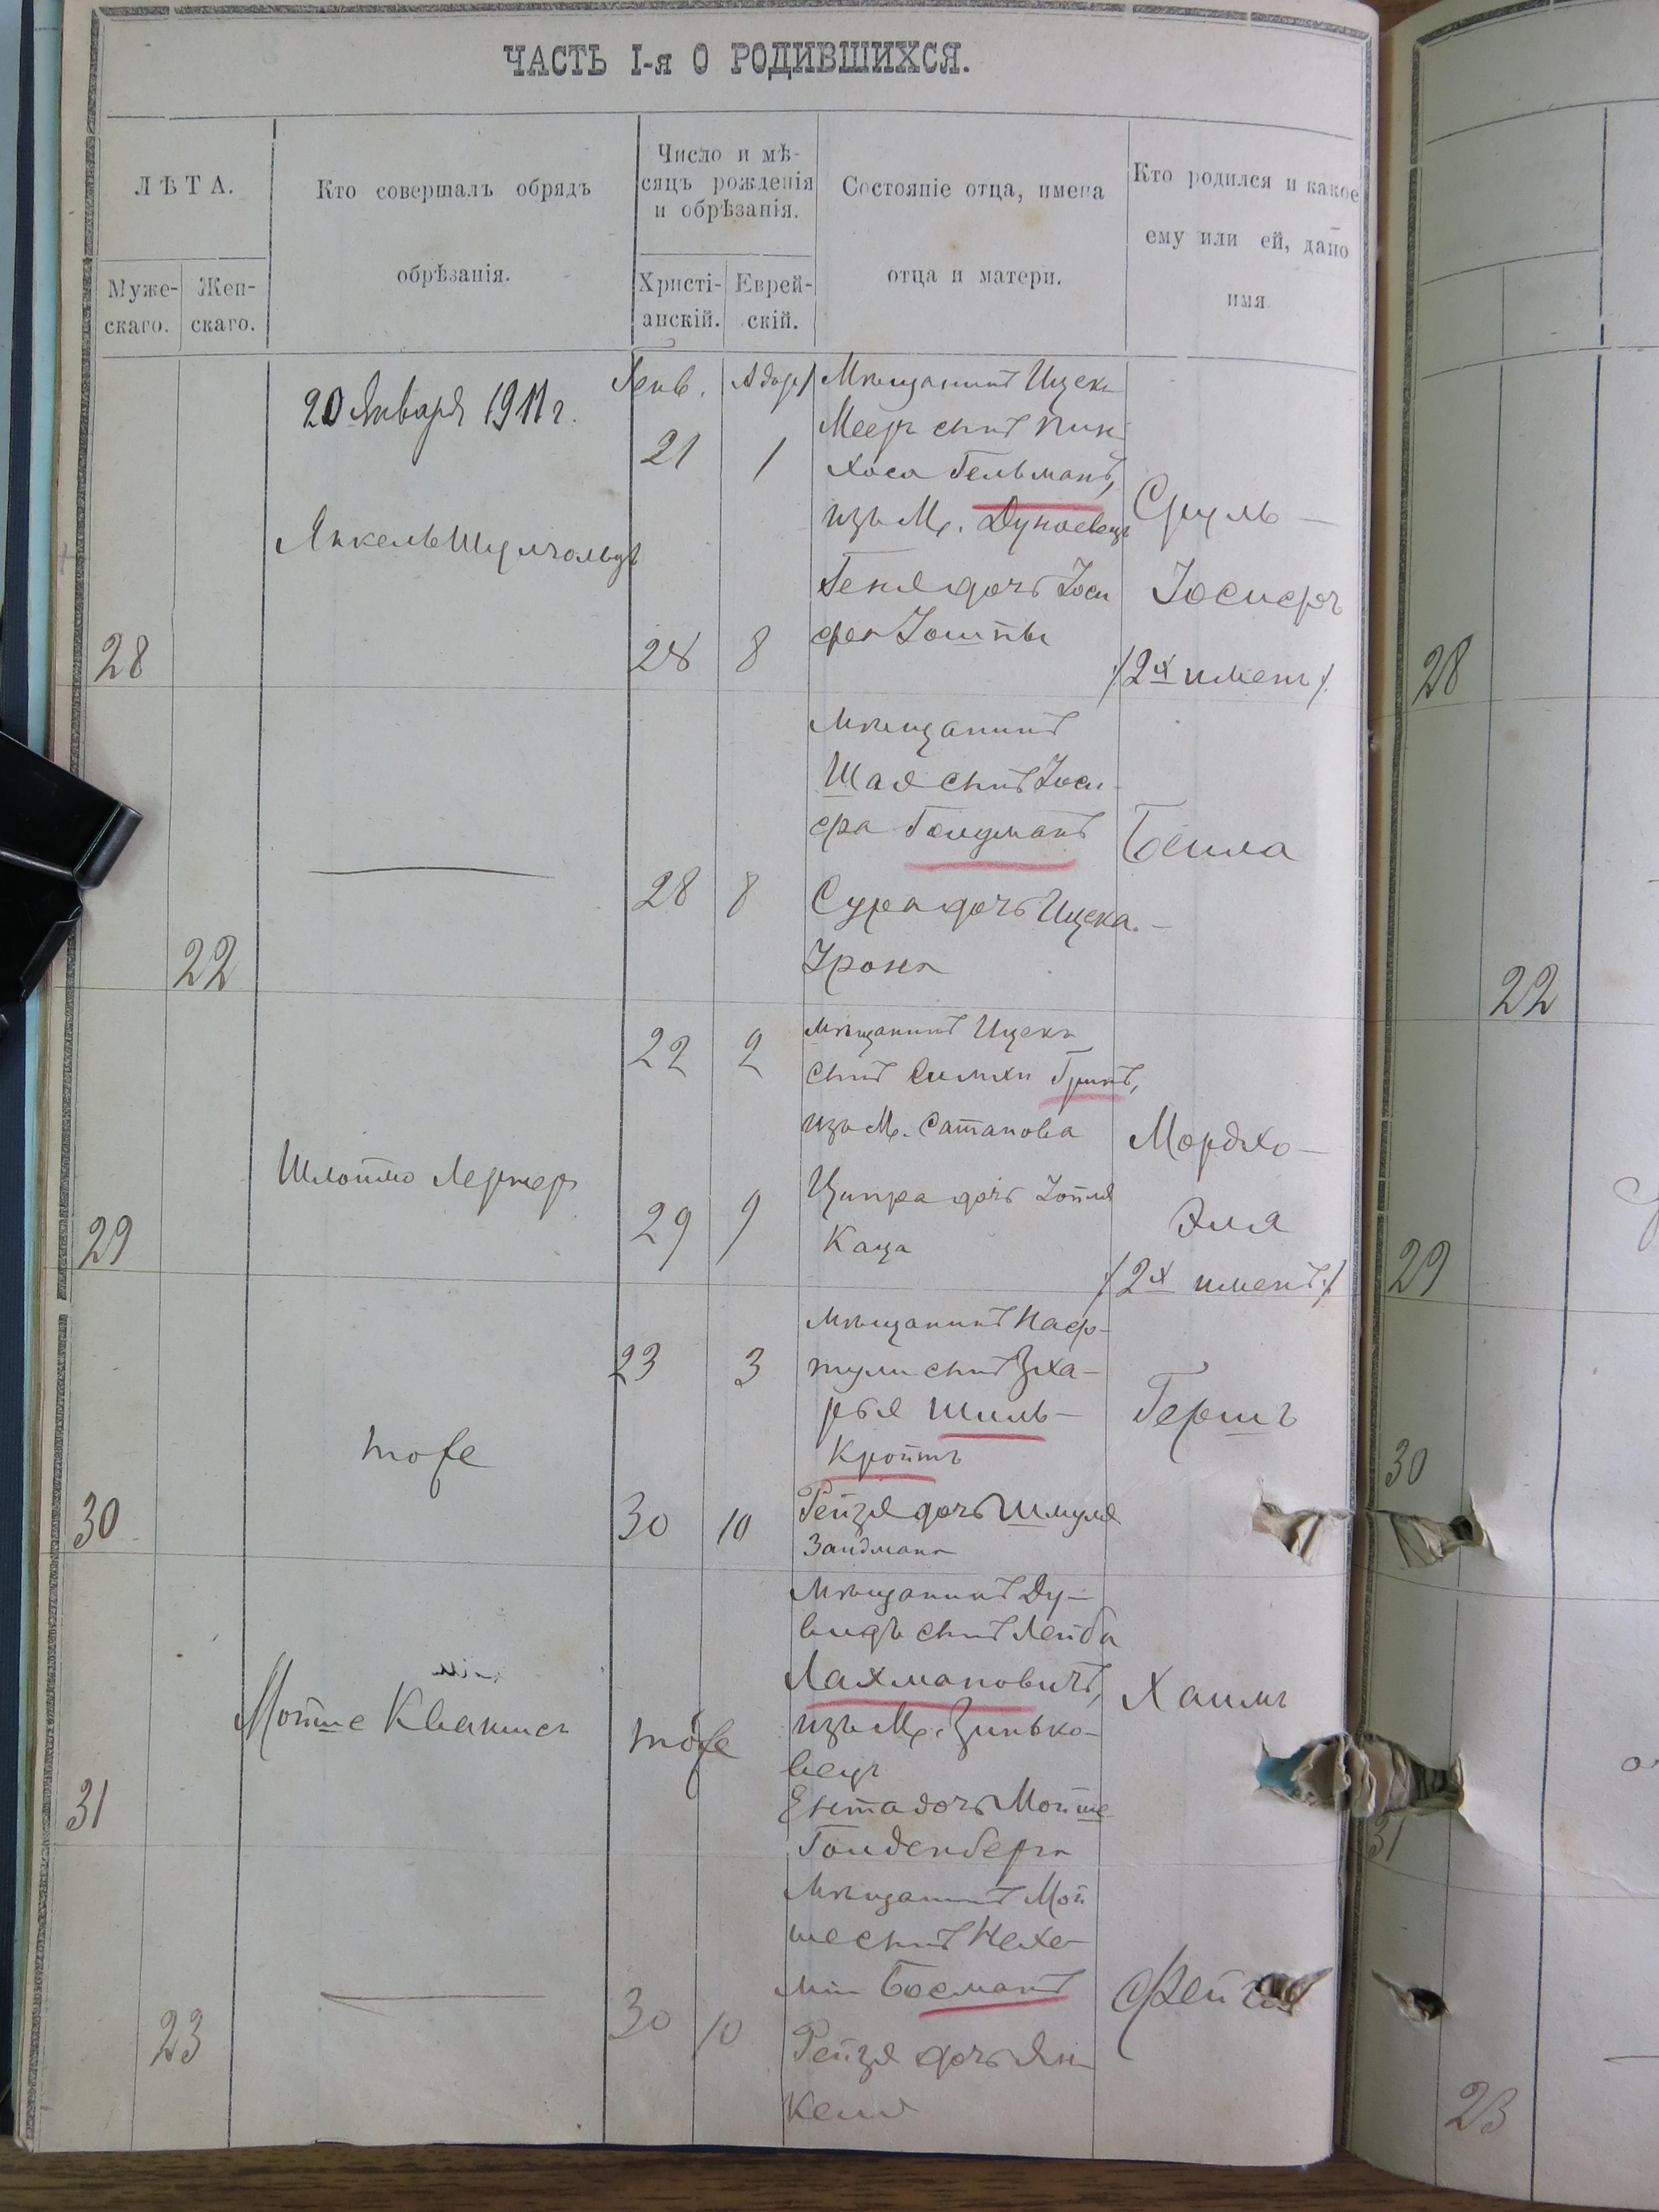 ЧАСТЬ I-я О РОДИВШИХСЯ.
ЛѢТА.
Муже-
скаго.
Жен-
скаго.
Кто совершалъ обрядъ
обрѣзанія.
Число и мѣ-
сяцъ рожденія
и обрѣзанія.
Христі-
анскій.
Еврей-
скій.
Состояніе отца, имена
отца и матери.
Кто родился и какое
ему или ей, дано
имя
28
20 Января 1911 г.
Янкель
Генв.
21
28
1
8
Мѣщанинъ Ицекъ
Мееръ сынъ Пин-
хоса Гельманъ,
изъ М. Дунаевецъ
Геня дочь Іоси
фа
Сруль —
Іосифъ
/2х именъ/.
22
28
8
Мѣщанинъ
Шая сынъ Іоси-
фа Гольдманъ
Сура дочь Ицека. —
Бейла
29
Шлоймо Лернер
22
29
2
9
Мѣщанинъ Ицекъ
сынъ Симхи Гринъ,
изъ М. Сатанова
Ципра дочь Іойля
Каца
Мордхо —
Эля
/2х именъ/
30
тоже
23
30
3
10
Мѣщанинъ Наф-
тули сынъ Зха-
рья Шиль-
Кройтъ
Рейзя дочь Шмуля
Зайдмана
Гершъ
31
Мойше
тоже
Мѣщанинъ Ду-
видъ сынъ Лейба
Лахмановичъ,
изъ М. Зинько-
вецъ
Ента дочь Мойше
Гольденберга
Хаимъ
23
30
10
Мѣщанинъ Мой
ше сынъ Нехе-
міи Босманъ
Рейзя дочь Ян-
келя
Фейга
28
22
29
30
31
23